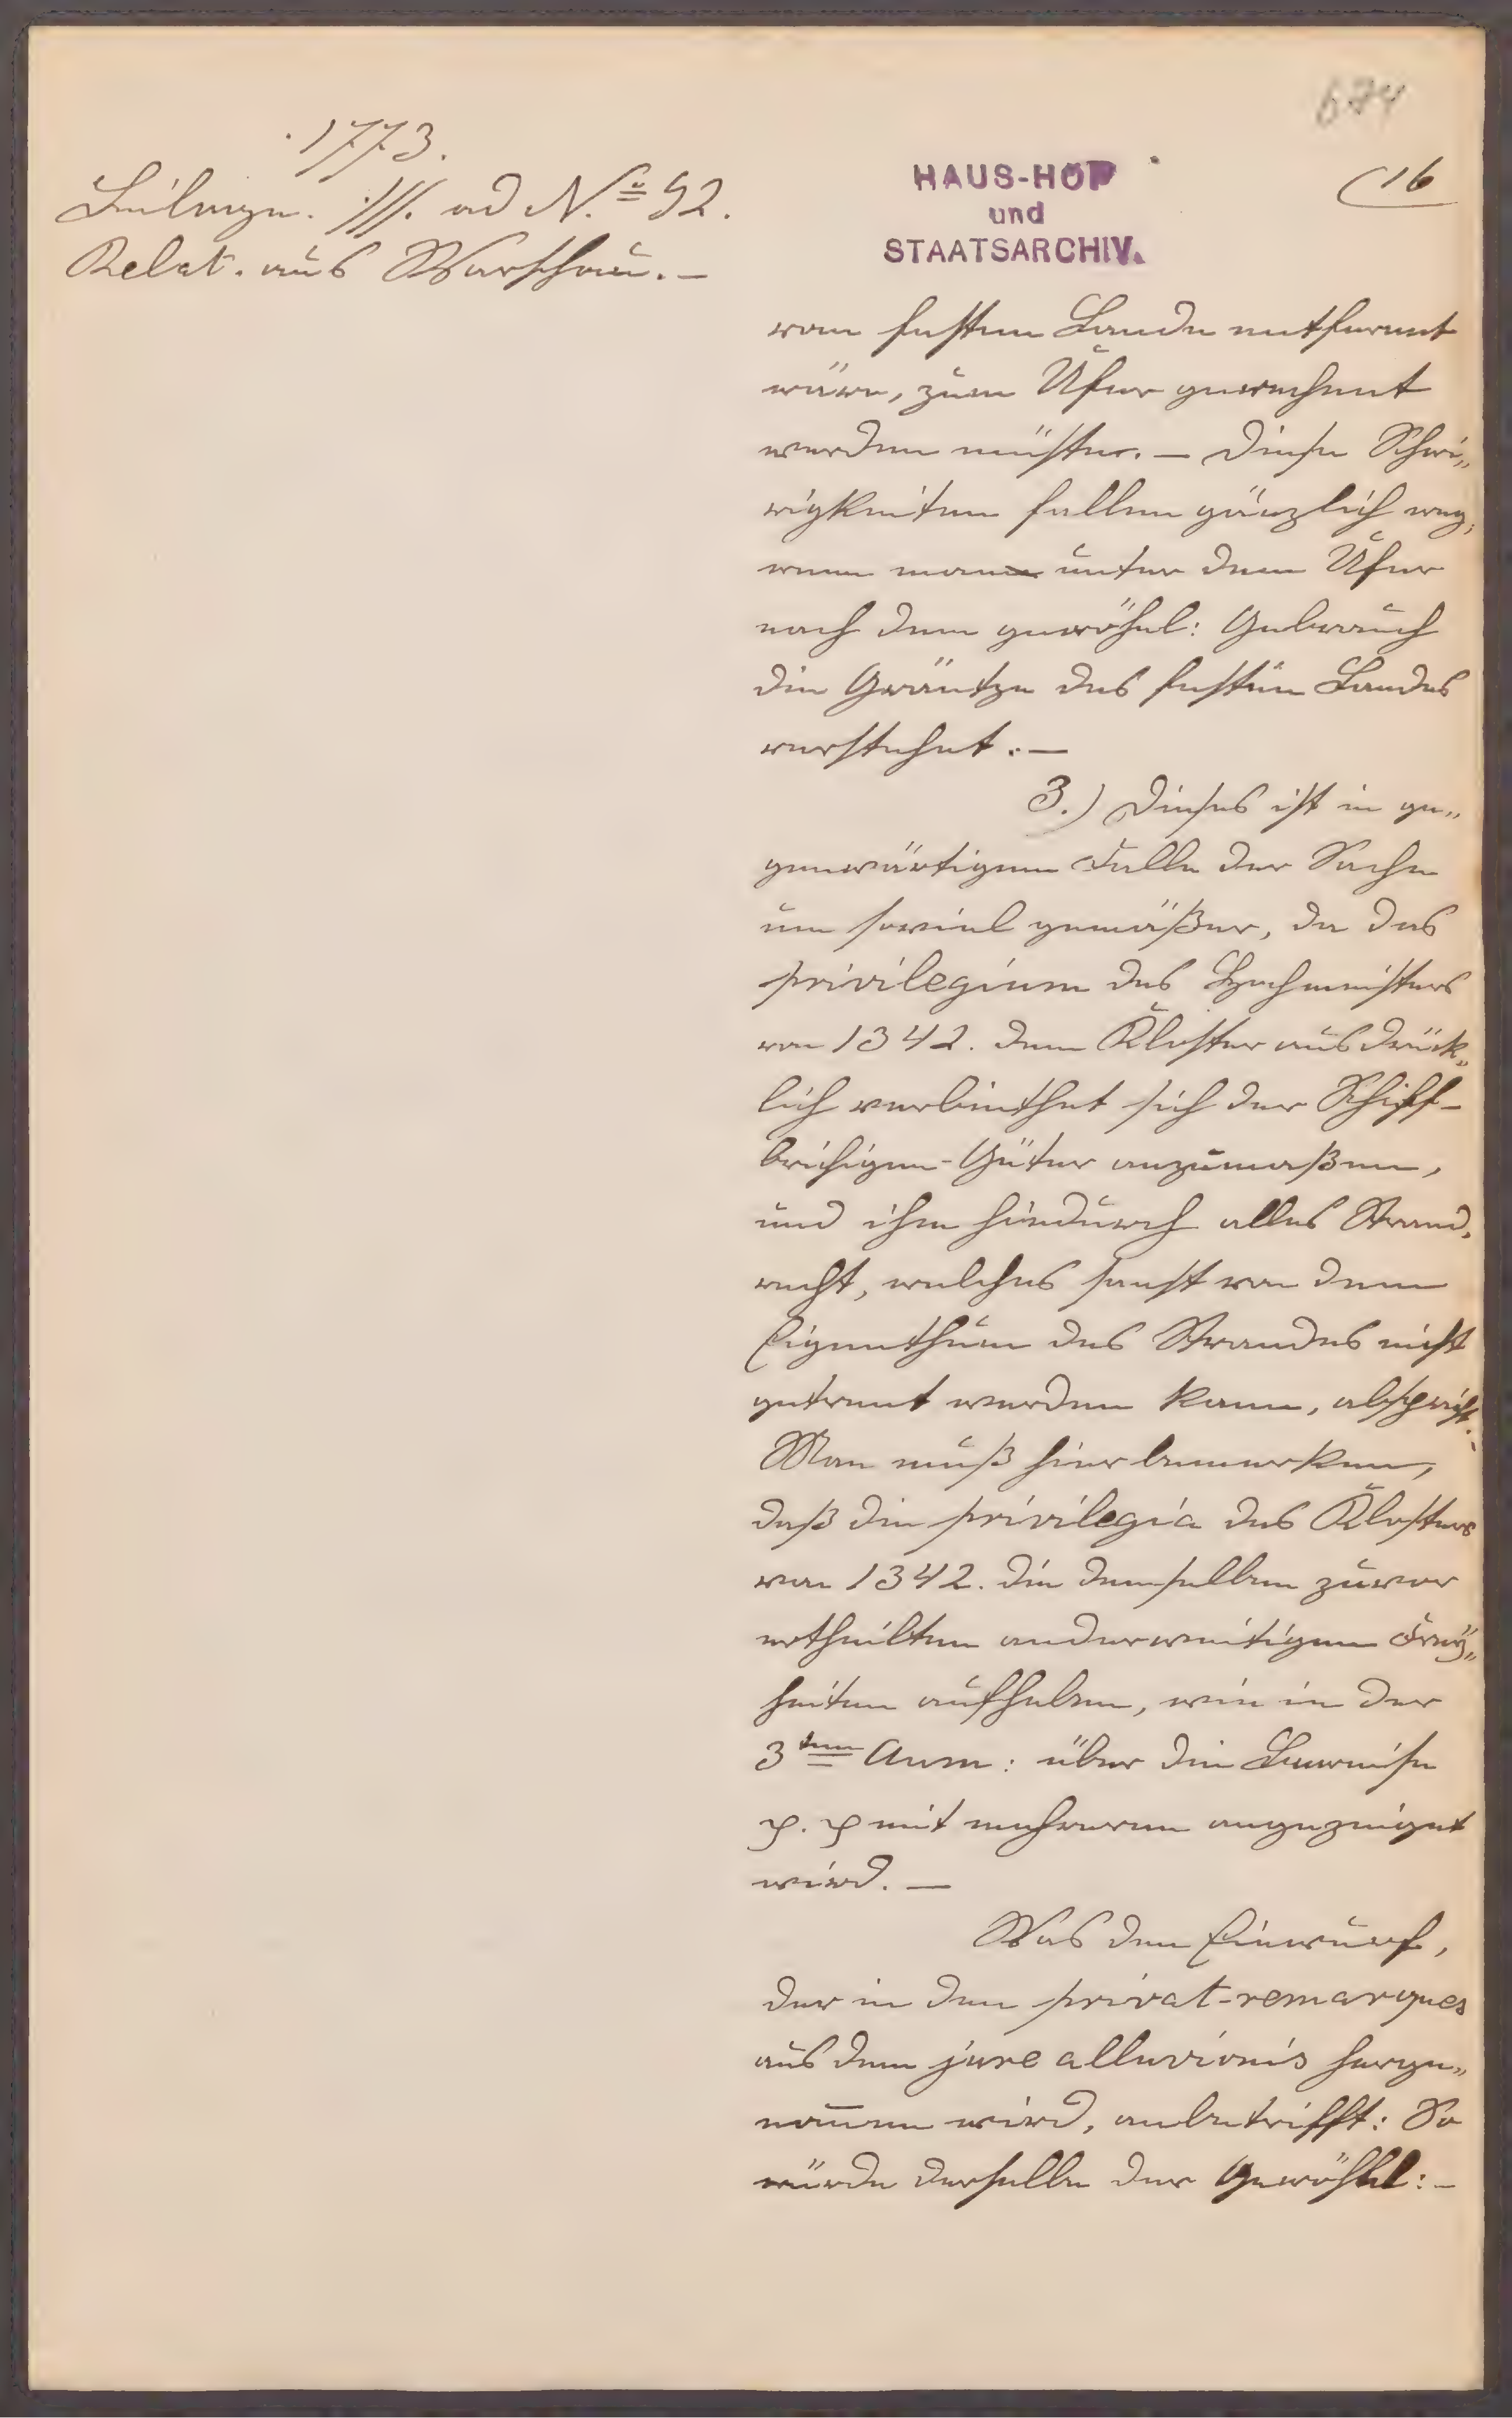 674
(16
1773.
Beilage. ·///. ad N.o 92.
Relat. aus Warschau. –
HAUS-HOF
und
STAATSARCHIV.
vom festen Lande entfernt
wäre, zum Ufer gerechnet
werden müsster. – Diese Schwi„
rigkeiten fallen gänzlich weg,
wenn man unter dem Ufer
nach dem gewöhnl: Gebrauch
die Gräntze des festen Landes
verstehet. –
3.) Dieses ist in ge„
genwärtigem Falle der Sache
um soviel gemäßer, da das
privilegium des Hochmeisters
von 1342. dem Kloster ausdrück„
lich verbiethet sich der Schiff-
brichigen-Güter anzumaßen,
und ihm hiedurch alles Strand„
recht, welches sonst von dem
Eigenthum des Strandes nicht
getrennt werden kann, abspricht.
Man muß hier bemerken,
daß die privilegia des Klosters
von 1342. die demselben zuvor
ertheilten anderweitigen Frey„
heiten aufheben, wie in der
3ten Anm: über die Beweise
p. p mit mehreren angezeiget
wird. –
Was den Einwurf,
der in den privat-remarques
aus dem jure alluvionis herge„
nom̄en wird, anbetrifft: So
würde derselbe der Gewöhnl: –